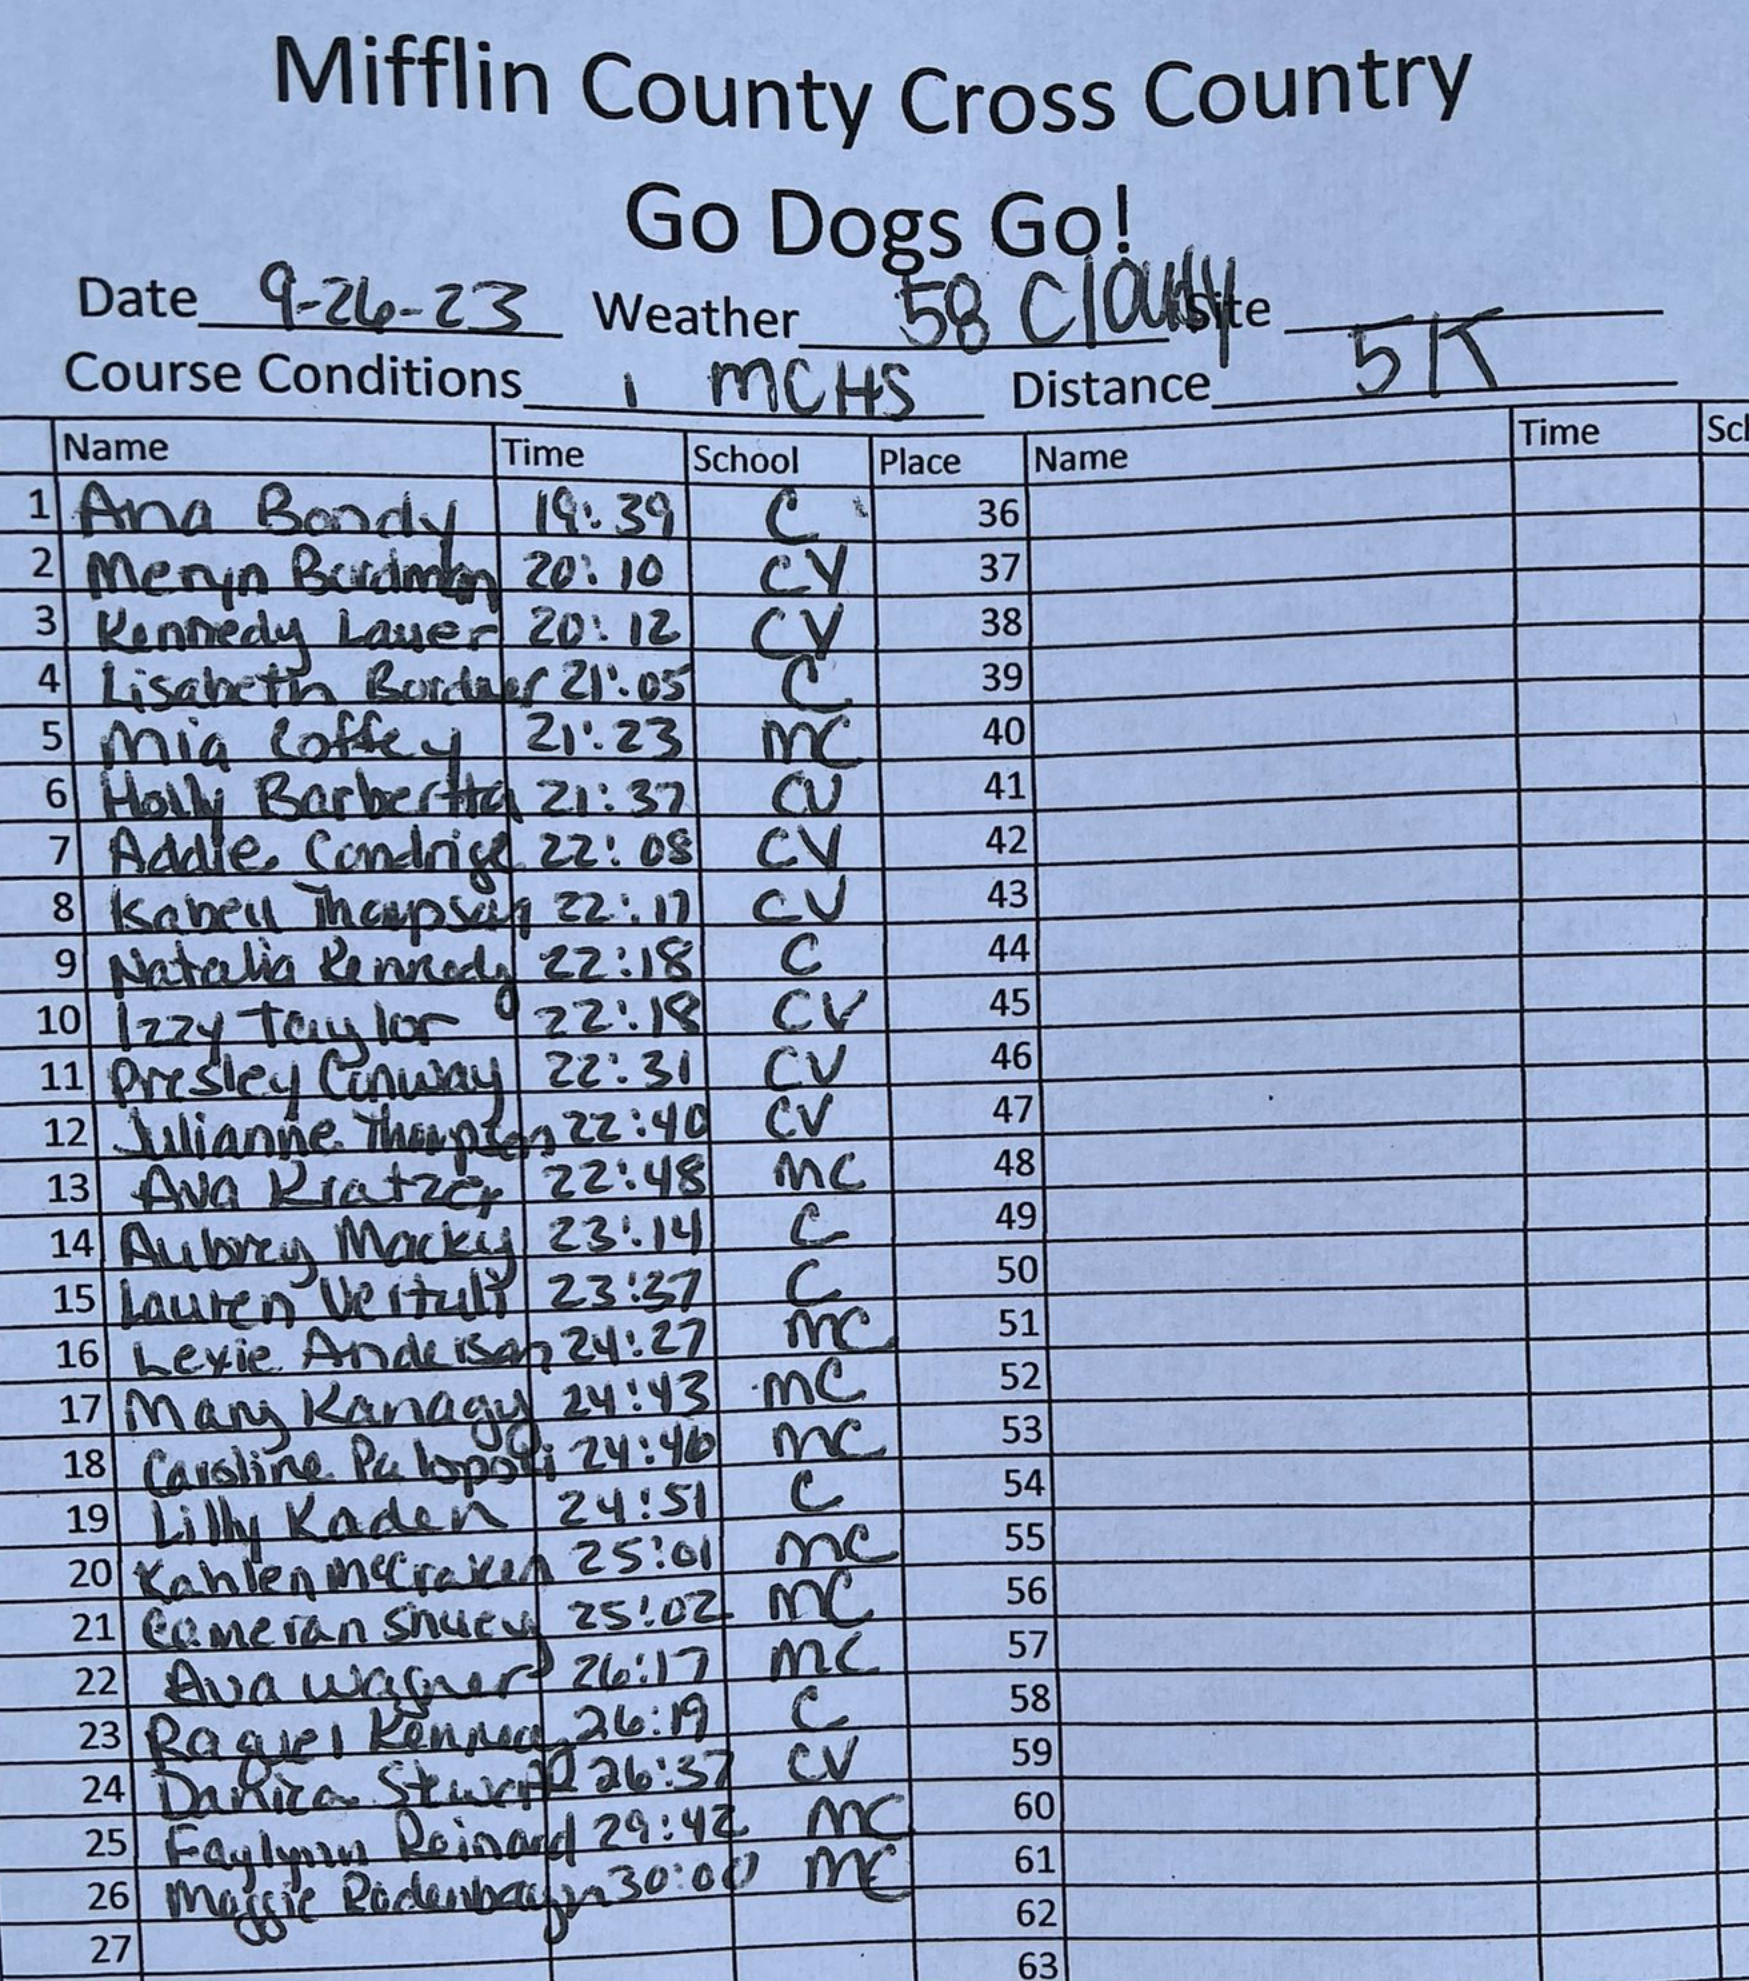 Mifflin County Cross Country
Go Dogs Go!
Date 9-26-23 Weather 58 Cloudy Site
Course Conditions MCHS Distance 5K
Name Time School Place Name Time
1 Ana Bondy 19:39 C 36
2 20:10 CV 37
3 Kennedy 20:12 CV 38
4 Lisabeth 21:05 C 39
5 Mia Coffey 21:23 MC 40
6 Holly 21:37 CV 41
7 Addie 22:08 CV 42
8 22:17 CV 43
9 Natalia Kennedy 22:18 C 44
10 Izzy Taylor 22:18 CV 45
11 Presley Conway 22:31 CV 46
12 Julianne 22:40 CV 47
13 Ava Kratzer 22:48 MC 48
14 Aubrey Macky 23:14 C 49
15 Lauren 23:37 C 50
16 Lexie Anderson 24:27 MC 51
17 Mary Kanagy 24:43 MC 52
18 Caroline 24:46 MC 53
19 Lilly Kaden 24:51 C 54
20 Kahlen McCraken 25:01 MC 55
21 Cameran 25:02 MC 56
22 Ava Wagner 26:17 MC 57
23 Raquel 26:19 C 58
24 Danica 26:37 CV 59
25 Faylynn Reinard 29:42 MC 60
26 Maggie 30:00 MC 61
27 62
63